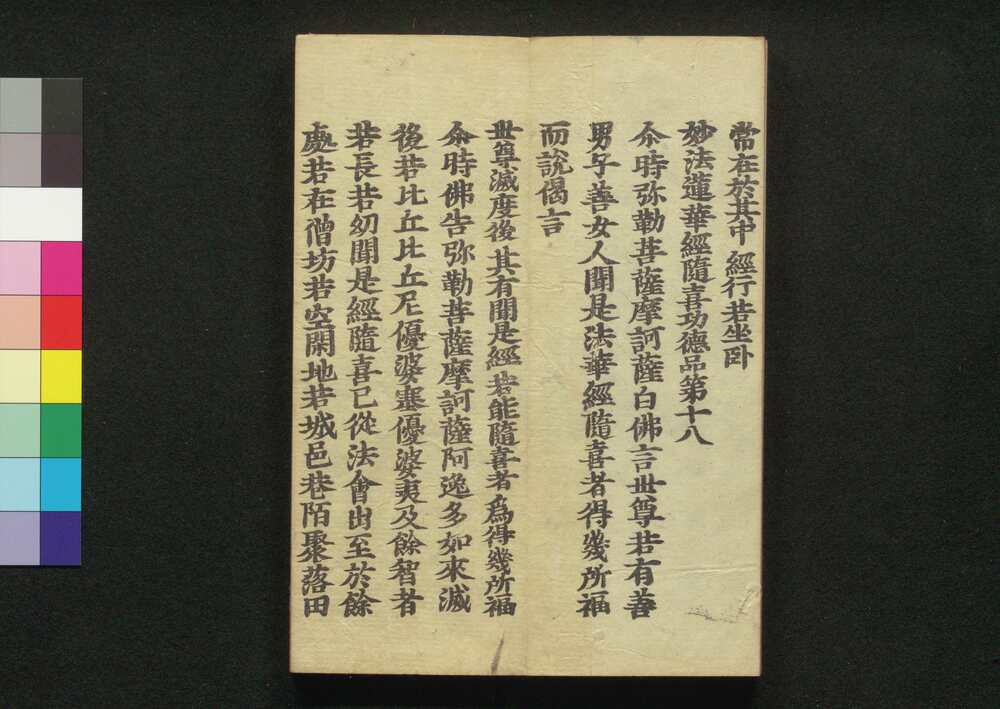 常在於其中 經行若坐卧
妙法蓮華經隨喜功德品第十八
尒時弥勒菩薩摩訶薩白佛言世尊若有善
男子善女人聞是法華經隨喜者得幾所福
而說偈言
世尊滅度後 其有聞是經 若能隨喜者 為得幾所福
尒時佛告弥勒菩薩摩訶薩阿逸多如來滅
後若比丘比丘尼優婆塞優婆夷及餘智者
若長若幼聞是經隨喜已從法會出至於餘
處若在僧坊若空閑地若城邑巷陌聚落田